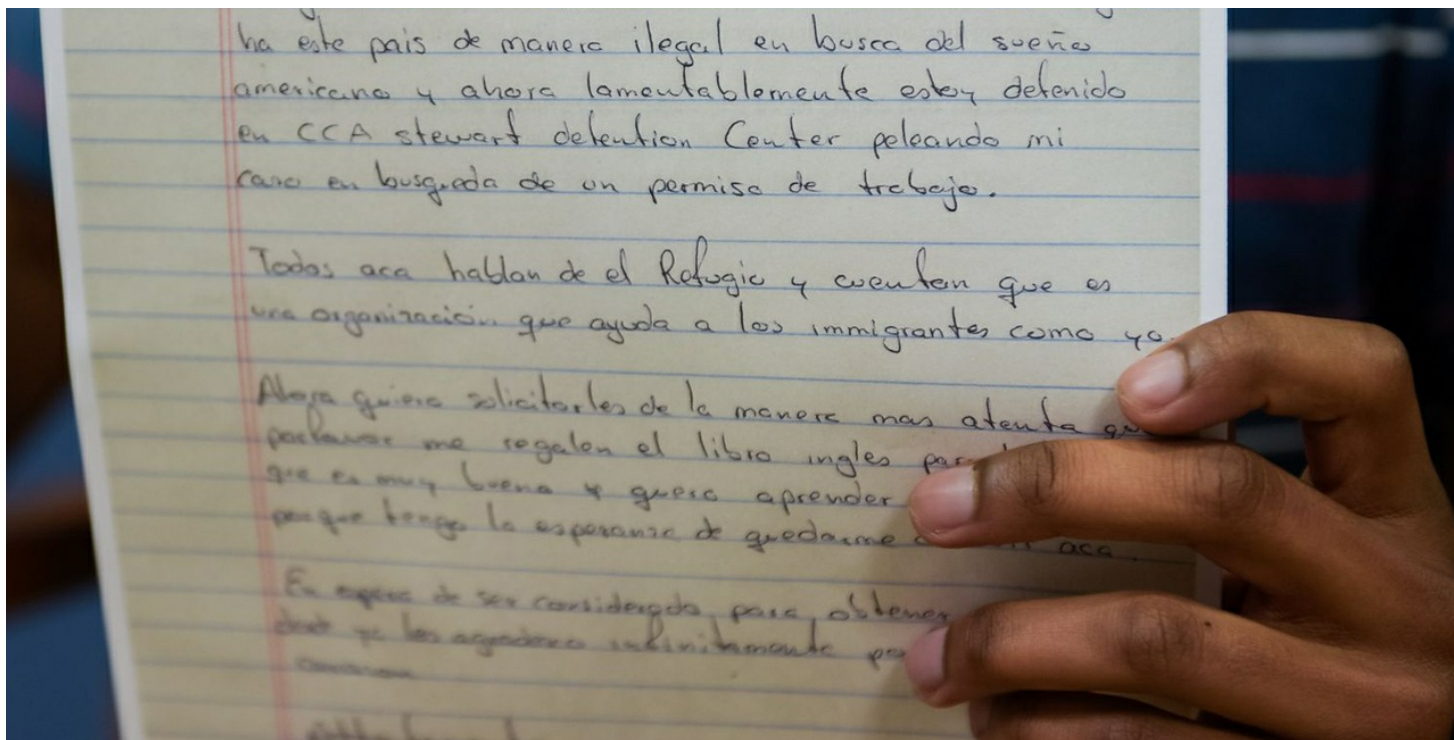 ha este pais de manera ilegal en busca del sueño
americano y ahora lamentablemente estoy detenido
en CCA stewart detention Center peleando mi
caso en busqueda de un permiso de trabajo.
Todos aca hablan de el Refugio y cuentan que es
una organización que ayuda a los immigrantes como yo.
Ahora quiero solicitarles de la manera mas atenta
me regalen el libro ingles
que es muy bueno y quero aprender
porque tengo la esperanza de quedarme aca
En espera de ser considerado para obtener
infinitamente